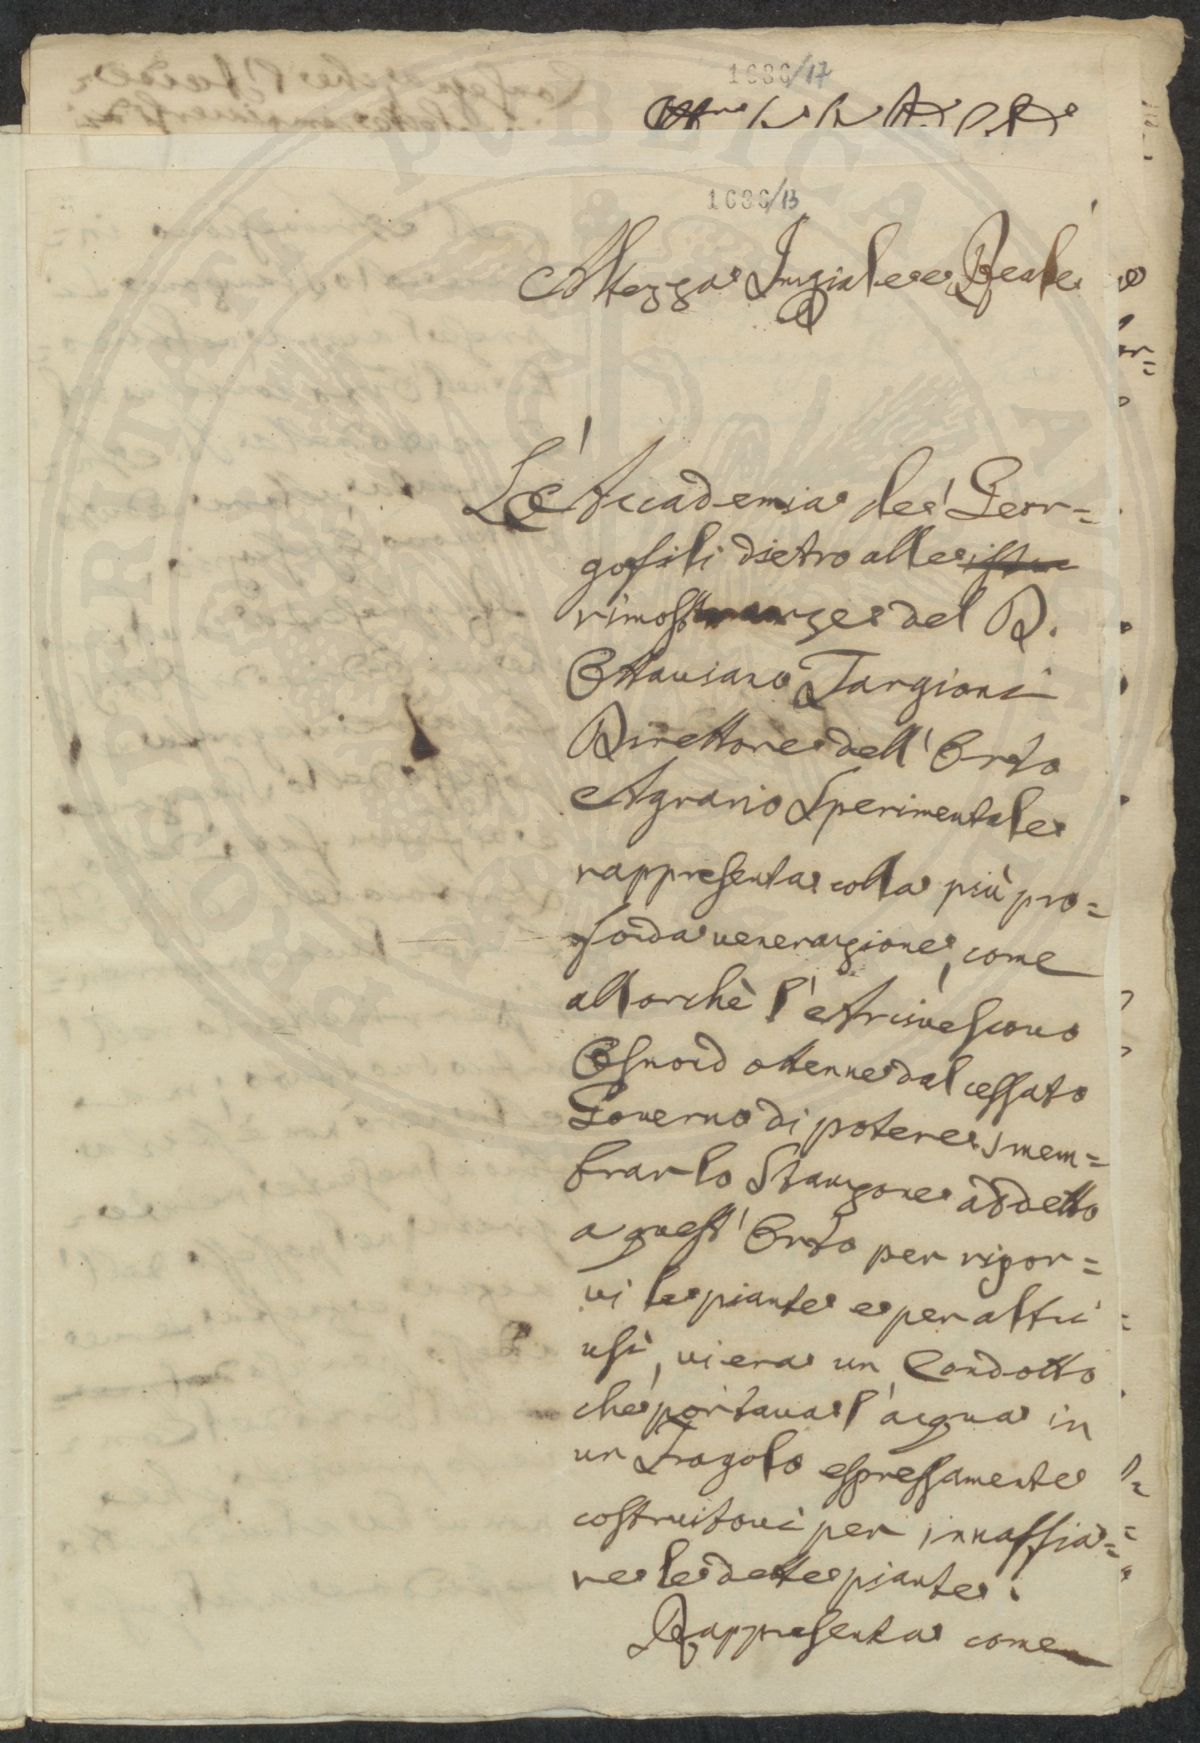 1686/17
1686/13
Altezza Imperiale e Reale
L'Accademia de' Geor=
gofili dietro alle istan
rimostranze del D.
Ottaviano Targioni
Direttore dell' Orto
Agrario Sperimentale
rappresenta colla più pro=
fonda venerazione, come
allorchè l'Arcivescovo
Osmond ottenne dal cessato
Governo di potere smem=
brar lo Stanzone addetto
a quest' Orto per ripor=
vi le piante e per altri
usi, vi era un Condotto
che portava l'acqua in
un Trogolo espressamente
costruitovi per innaffia=
re le dette piante.
Rappresenta come